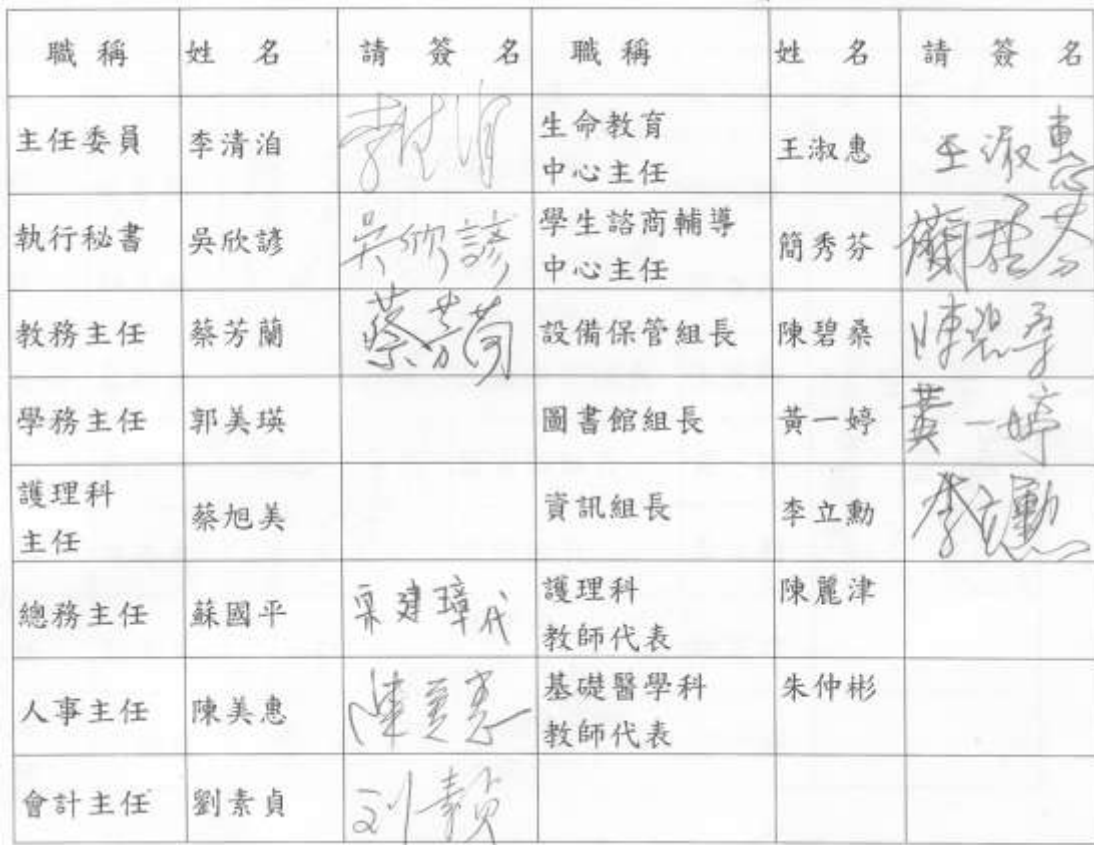 職稱 姓名 請簽名 職稱 姓名 請簽名
主任委員 李清洎 李清洎 生命教育
中心主任 王淑惠 王淑惠
執行秘書 吳欣諺 吳欣諺 學生諮商輔導
中心主任 簡秀芬 簡秀芬
教務主任 蔡芳蘭 蔡芳蘭 設備保管組長 陳碧桑 陳碧桑
學務主任 郭美瑛 圖書館組長 黃一婷 黃一婷
護理科
主任 蔡旭美 資訊組長 李立勳 李立勳
總務主任 蘇國平 建璋代 護理科
教師代表 陳麗津
人事主任 陳美惠 陳美惠 基礎醫學科
教師代表 朱仲彬
會計主任 劉素貞